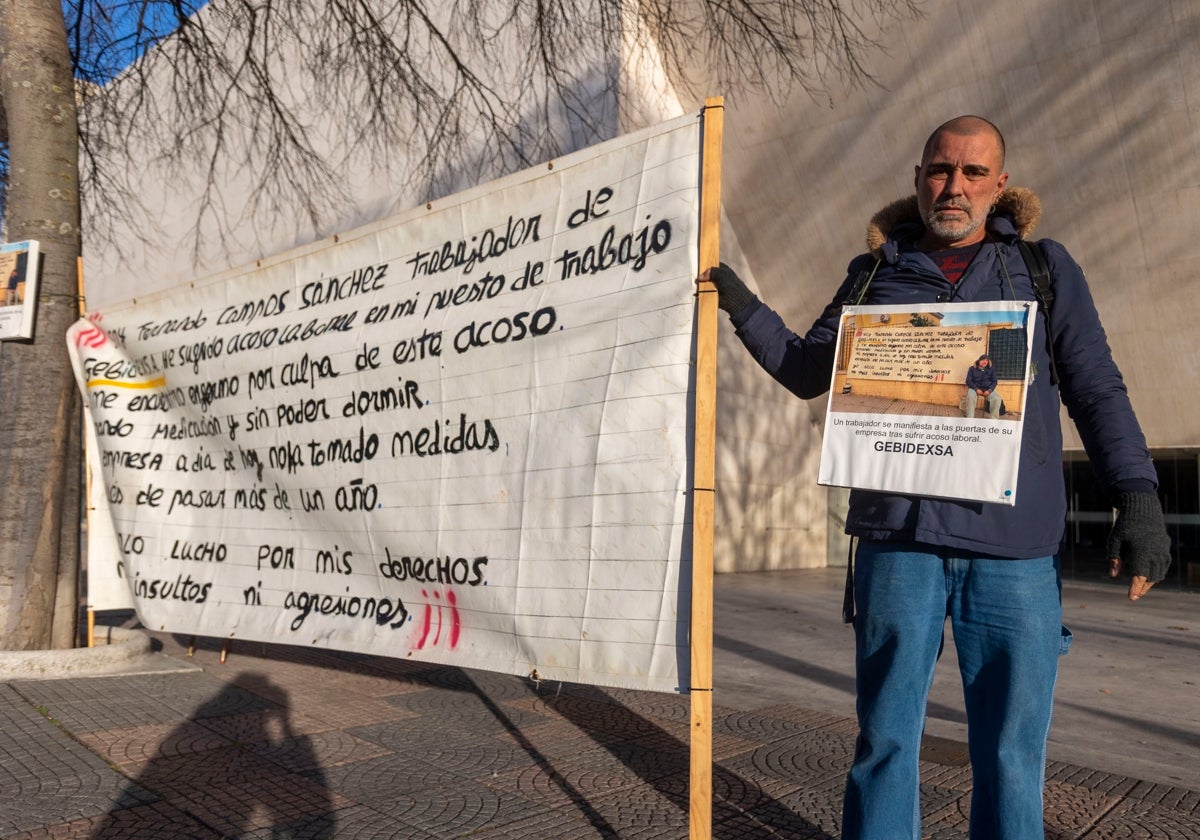 Fernando Campos Sánchez trabajador de
GEBIDEXSA He sufrido acoso laboral en mi puesto de trabajo
me encuentro enfermo por culpa de este acoso.
medicación y sin poder dormir.
empresa a día de hoy no ha tomado medidas,
de pasar más de un año.
lucho por mis derechos.
insultos, ni agresiones, ¡¡¡
Un trabajador se manifiesta a las puertas de su
empresa tras sufrir acoso laboral.
GEBIDEXSA